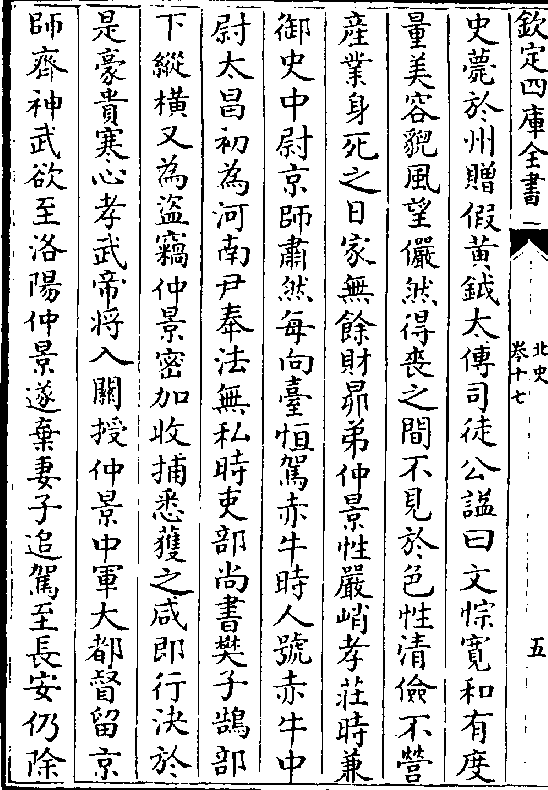 欽定四庫全書
北史
卷十七
五
史薨於州贈假黄鉞太傅司徒公諡曰文悰寛和有度
量美容貌風望儼然得喪之間不見於色性清儉不營
産業身死之日家無餘財昴弟仲景性嚴峭孝莊時兼
御史中尉京師肅然每向臺恒駕赤牛時人號赤牛中
尉太昌初為河南尹奉法無私時吏部尚書樊子鵠部
下縱横又為盜竊仲景密加收捕悉獲之咸即行決於
是豪貴寒心孝武帝将入關授仲景中軍大都督留京
師齊神武欲至洛陽仲景遂棄妻子追駕至長安仍除